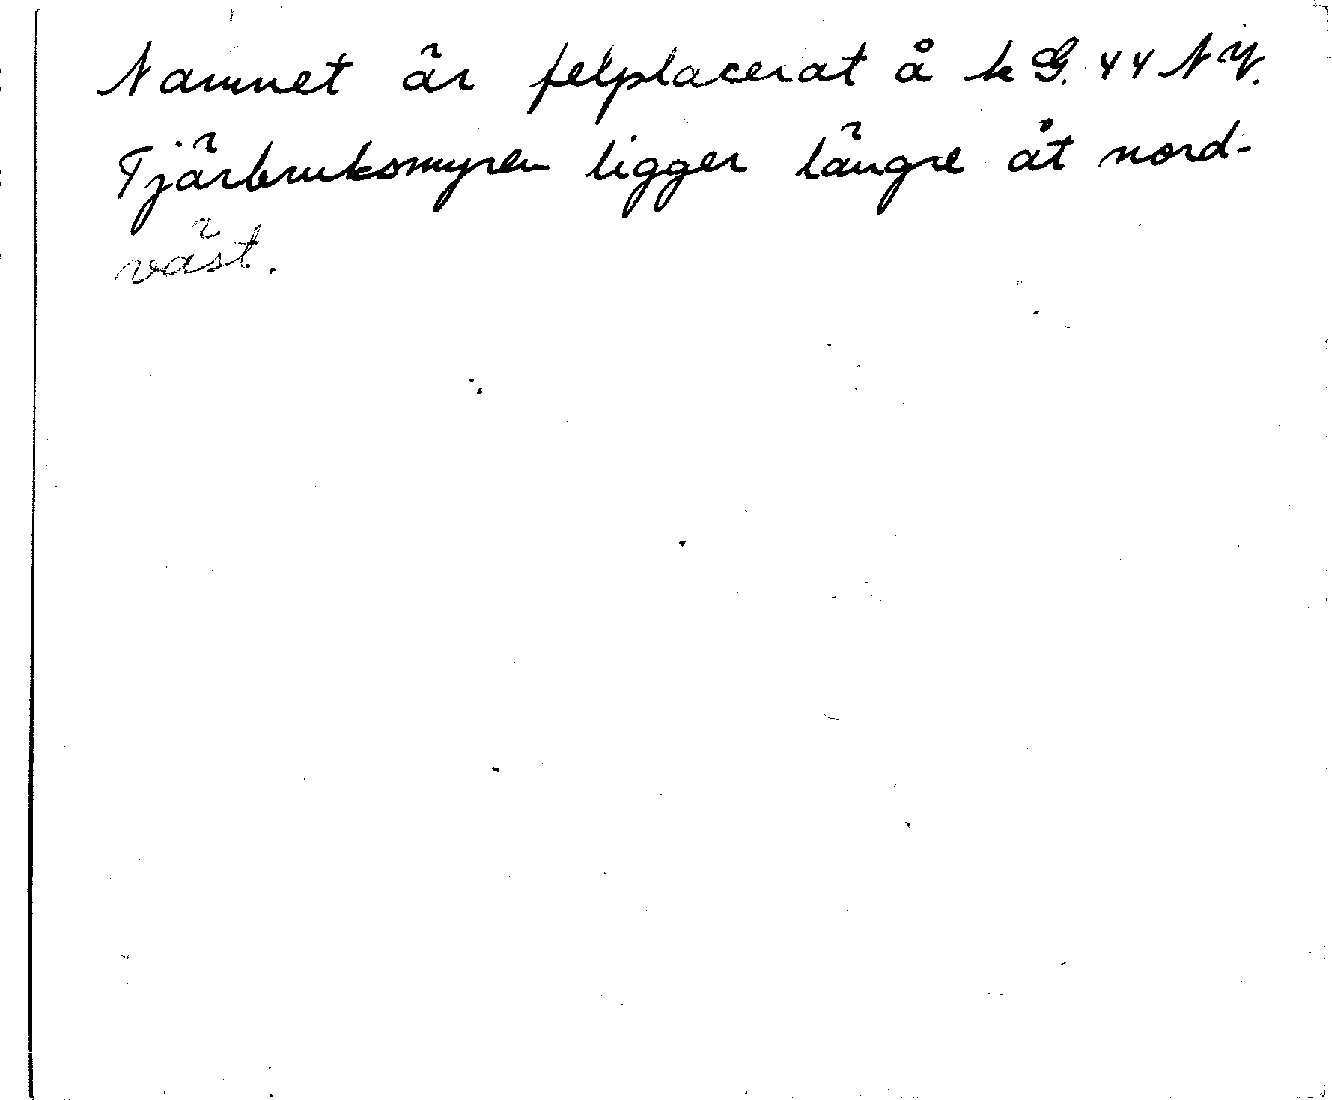 Namnet är felplacerat å k G. 44 NV.
Tjärbruksmyren ligger längre åt nord-
väst.